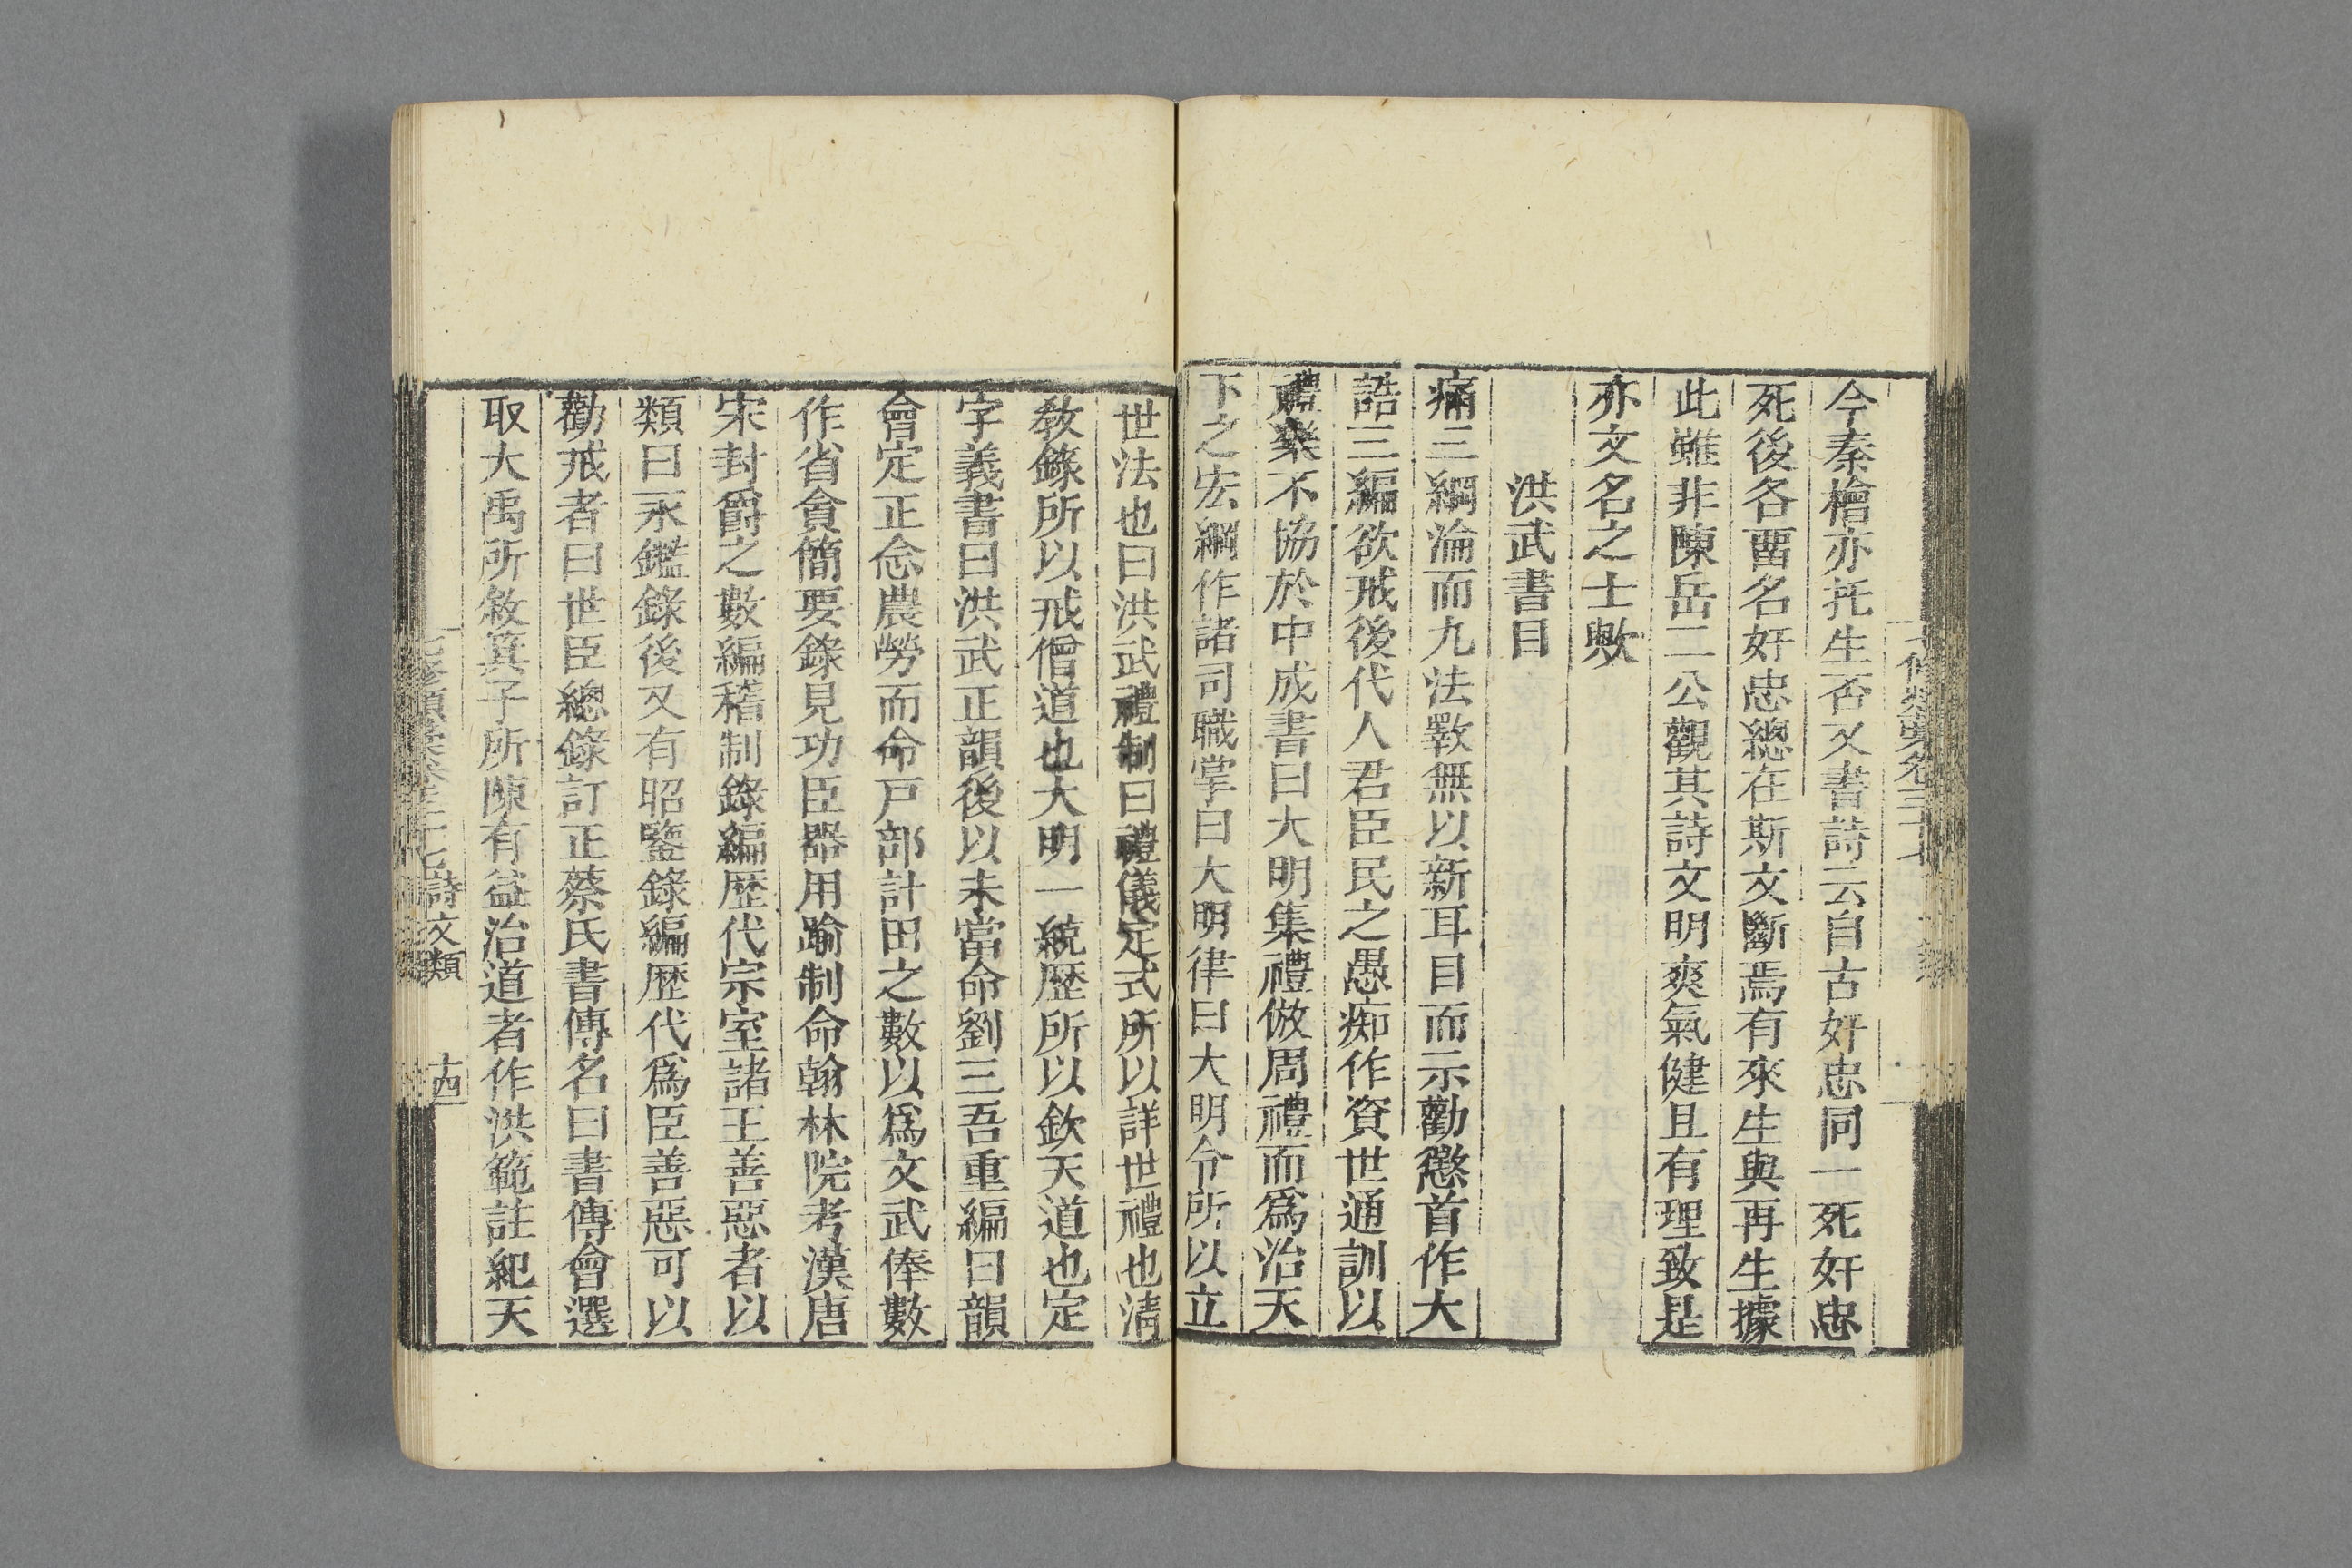 今秦檜亦托生否又書詩云自古奸忠同一死奸忠
死後各畱名奸忠總在斯文斷焉有來生與再生據
此雖非陳岳二公觀其詩文明爽氣健且有理致是
亦文名之士歟
洪武書目
痛三綱淪而九法斁無以新耳目而示勸懲首作大
誥三編欲戒後代人君臣民之愚痴作資世通訓以
禮樂不協於中成書曰大明集禮倣周禮而爲治天
下之宏綱作諸司職掌曰大明律曰大明令所以立
世法也曰洪武禮制曰禮儀定式所以詳世禮也淸
敎錄所以戒僧道也大明一統歷所以欽天道也定
字義書曰洪武正韻後以未當命劉三吾重編曰韻
會定正念農勞而命戸部計田之數以爲文武俸數
作省貪簡要錄見功臣器用踰制命翰林院考漢唐
宋封爵之數編稽制錄編歷代宗室諸王善惡者以
類曰永鑑錄後又有昭鑒錄編歷代爲臣善惡可以
勸戒者曰世臣總錄訂正蔡氏書傳名曰書傳會選
取大禹所敘箕子所陳有益治道者作洪範註紀天
七修類稾卷三十七 詩文類 十四